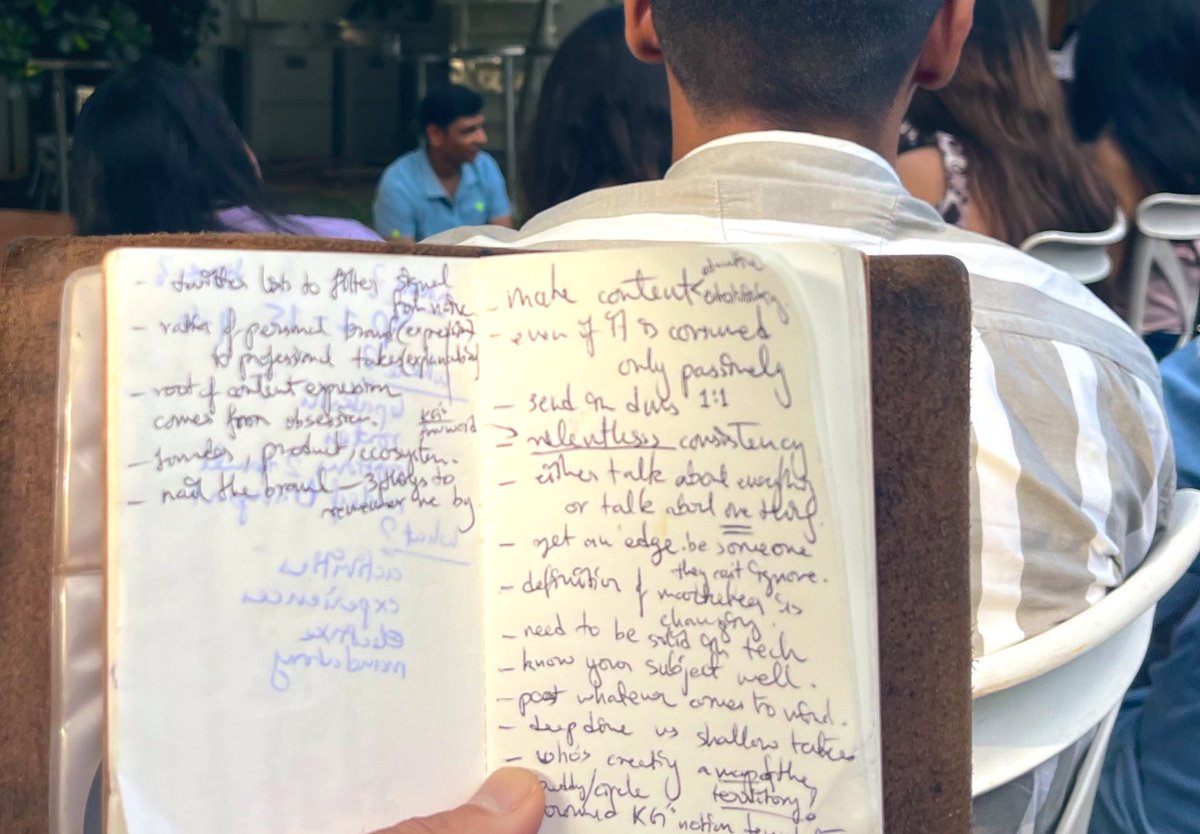 - twitter lists to filter signal
from noise
- ratio of personal brand (expression)
to professional takes (explanation)
- root of content expression
comes from obsession.
KG's
- founder, product/ecosystem.
- nail the brand - 3 things to
remember me by
what?
activities
experiences
elective
mandatory
- make content
- even if it is consumed
only passively
- send on dms 1:1
- relentless consistency
- either talk about everything
or talk about one thing.
- get an edge. be someone
they can't ignore.
- definition of marketing is
changing.
- need to be solid on tech
- know your subject well.
- post whatever comes to mind.
- deep dive vs shallow takes
- who's creating a map of the
territory?
/circle
KG's notion